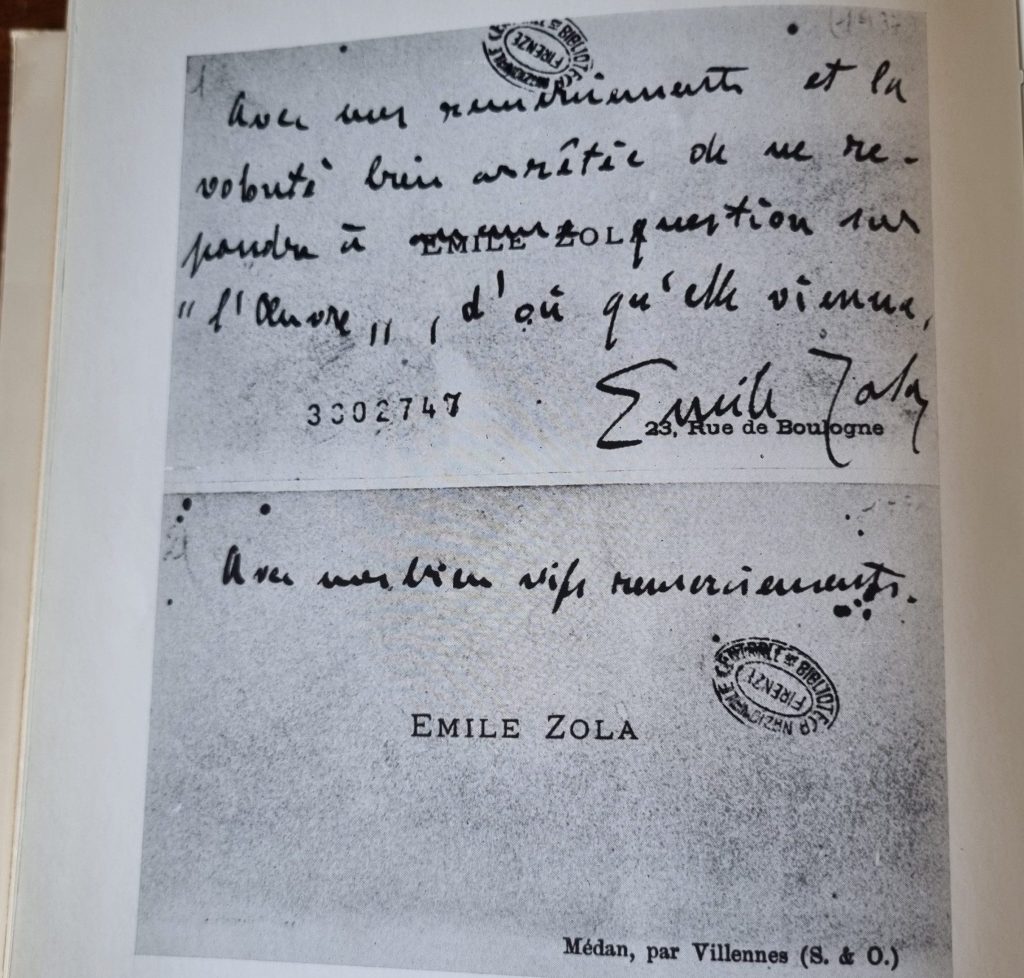 Avec mes remerciements et la
volonté bien arrêtée de ne ré-
pondre à aucune question sur
EMILE ZOLA
"l'Œuvre", d'où qu'elle vienne,
3302747
Emile Zola
23, Rue de Boulogne
Avec mes bien vifs remerciements.
BIBLIOTECA NAZIONALE CENTRALE
FIRENZE
EMILE ZOLA
Médan, par Villennes (S. & O.)